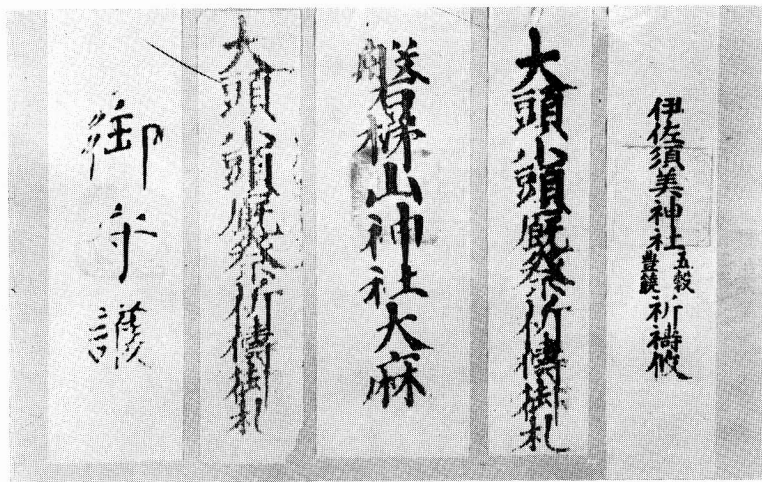 伊佐須美神社五穀豊饒祈禱攸
大頭小頭厩祭祈禱御札
磐梯山神社大麻
大頭小頭厩祭祈禱御札
御守護